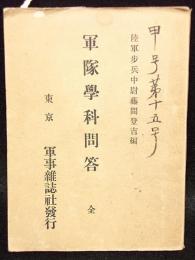 甲号第十五号
陸軍歩兵中尉藤間登吉編
軍隊學科問答 全
東京 軍事雜誌社發行